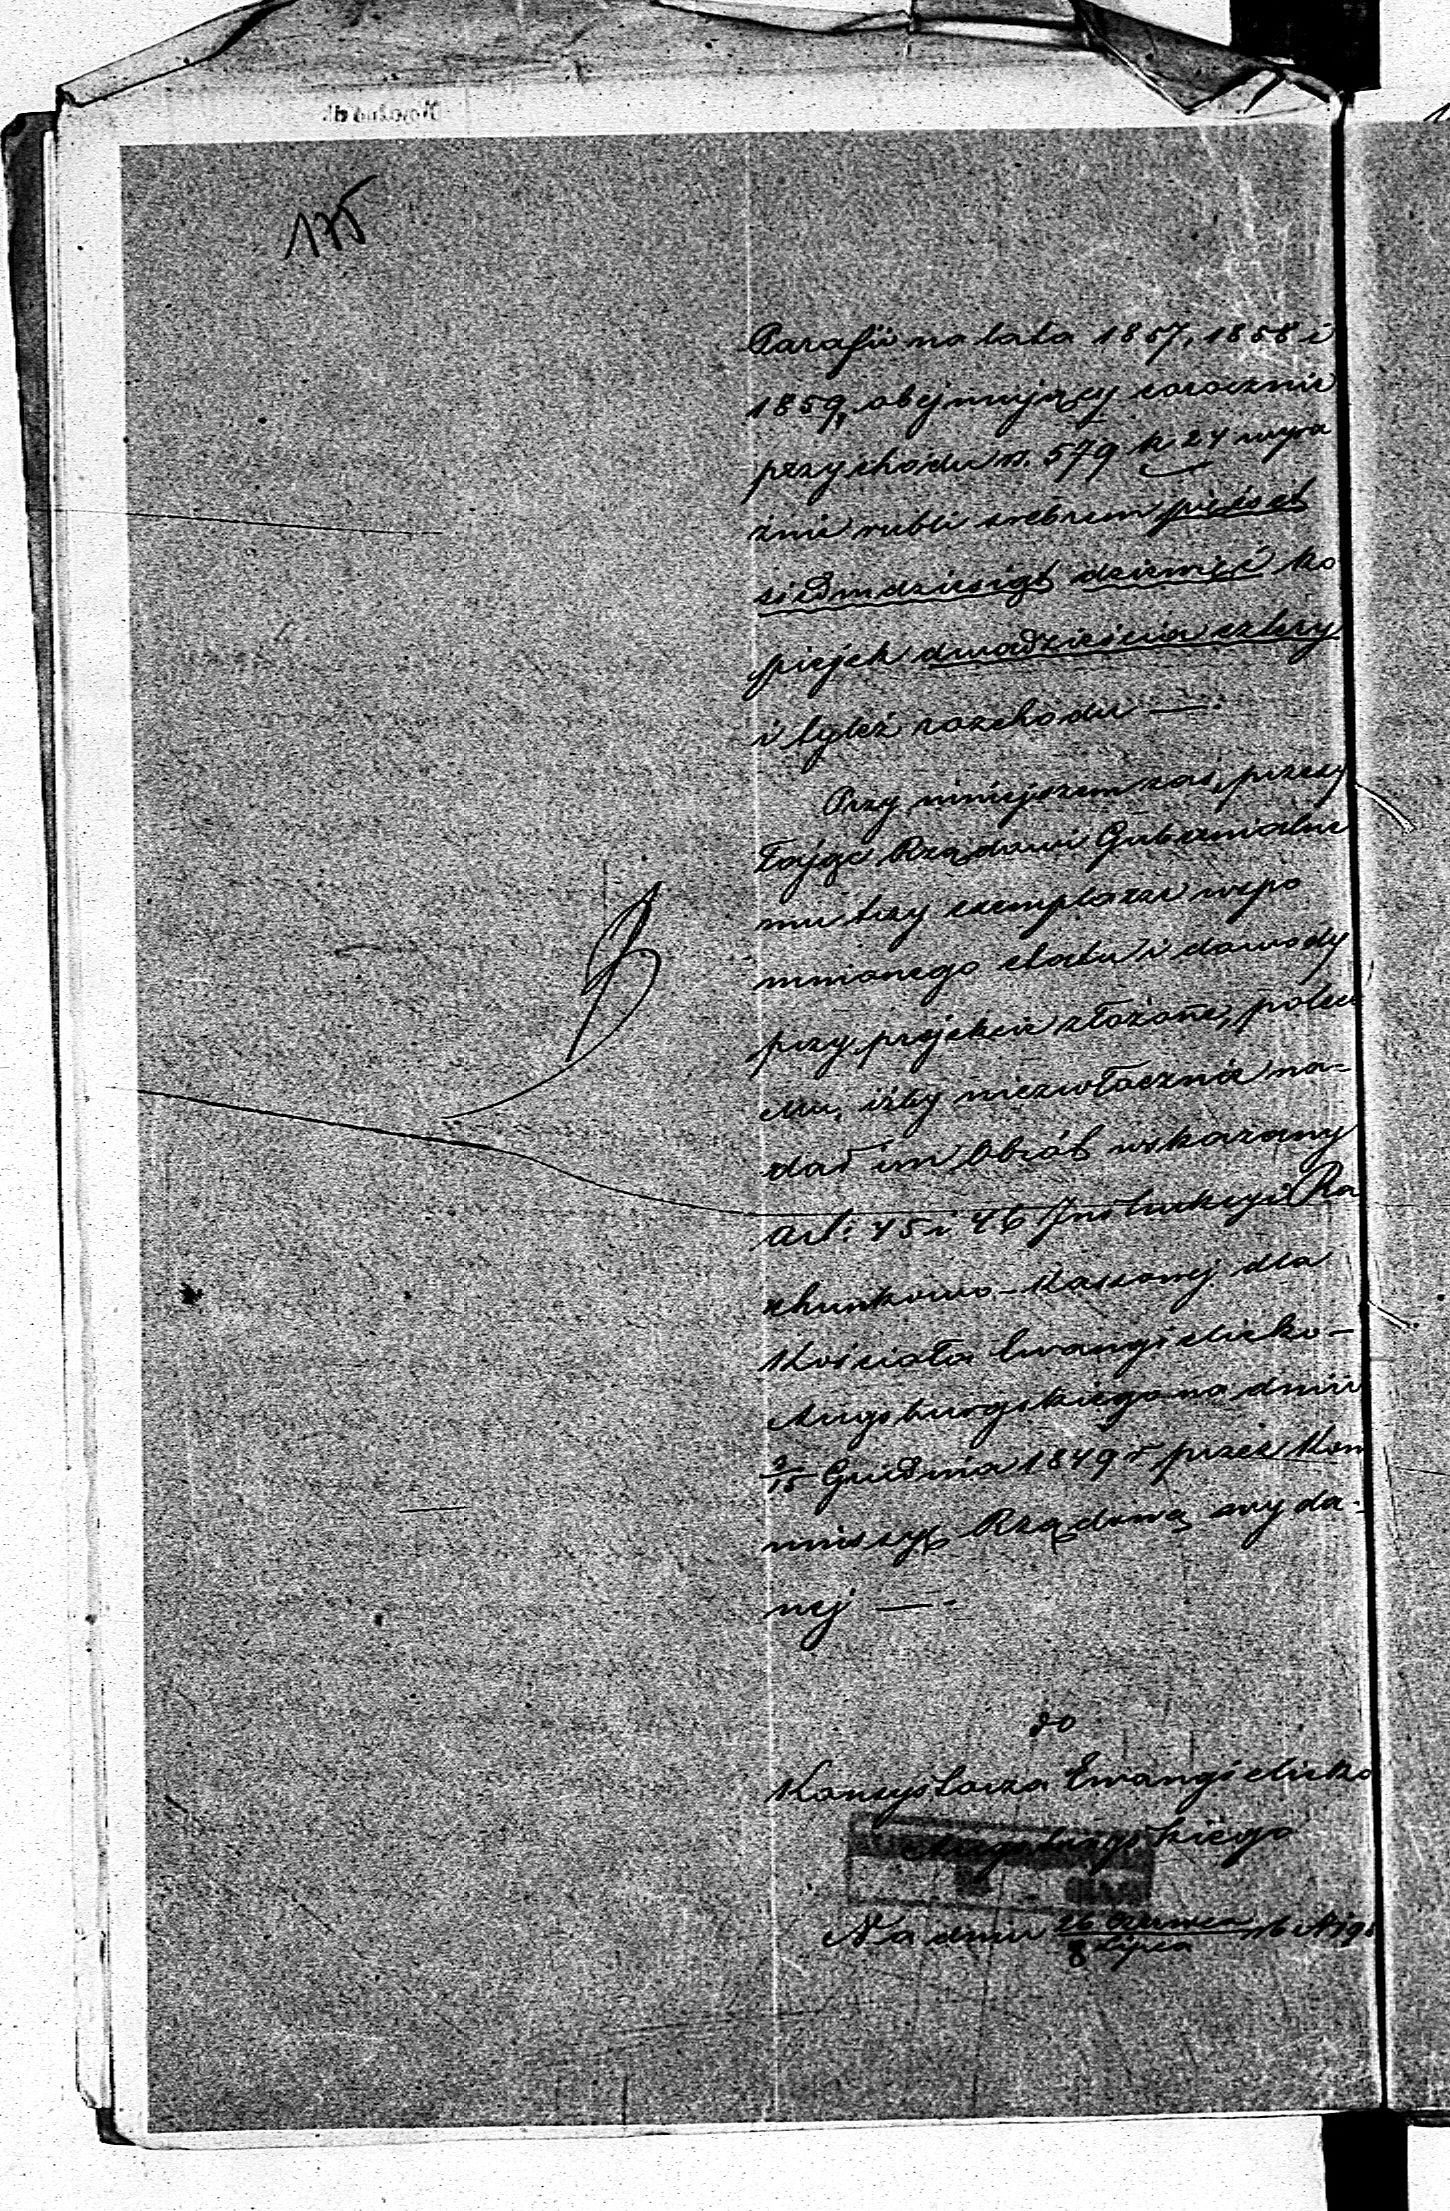 175
Parafii na lata 1857, 1858 i
1859, obejmujący corocznie
przychodu rs. 579 k 24 wyra
źnie rubli srebrem pięćset
siedmdziesiąt dziewięć ko
piejek dwadzieścia cztery
i tyleż rozchodu —.
Przy niniejszem zaś, przesy
łając Rządowi Gubernialne
mu trzy exemplarze wspo
mnionego etatu i dowody
przy projekcie złożone, poleca
mu, iżby niezwłocznie na-
dał im obrót wskazany
Art: 45 i 46 Instrukcyi Ra
chunkowo-Kassowej dla
Kościoła Ewangielicko-
Augsburgskiego na dniu
3/15 Grudnia 1849 r przez Kom
missyę Rządową wyda-
nej —.
do
Konsystorza Ewangielicko
Augsburgskiego
Na dniu 26 Czerwca / 8 Lipca